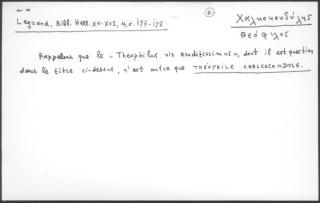 Legrand, Bibl. Hell. XV-XVI, 4, p. 197-198
Χαλκοκονδύλης
Θεόφιλος
Rappelons que le « Theophilus vir eruditissimus », dont il est question
dans le titre ci-dessus, n'est autre que THÉOPHILE CHALCOCONDYLE.